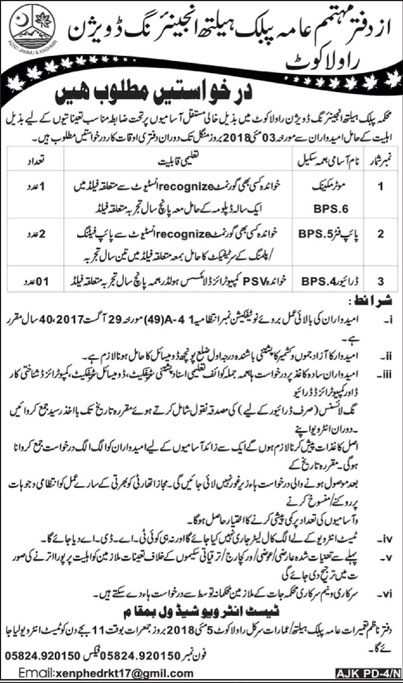 AZAD JAMMU & KASHMIR
از دفتر مہتمم عامہ پبلک ہیلتھ انجینئرنگ ڈویژن
راولاکوٹ
درخواستیں مطلوب ہیں
محکمہ پبلک ہیلتھ انجینئرنگ ڈویژن راولاکوٹ میں بذیل خالی مستقل آسامیوں پر تحت ضابطہ مناسب تعیناتیوں کے لیے بذیل
اہلیت کے حامل امیدواران سے مورخہ 03 مئی 2018 بروز منگل تک دوران دفتری اوقات کار درخواستیں مطلوب ہیں۔
نمبر شمار نام آسامی بمعہ سکیل تعلیمی قابلیت تعداد
1 موٹر مکینک BPS.6 خواندہ کسی بھی گورنمنٹ recognize انسٹیٹیوٹ سے متعلقہ فیلڈ میں ایک سالہ ڈپلومہ کے حامل معہ پانچ سال تجربہ متعلقہ فیلڈ میں 1 عدد
2 پائپ فٹر BPS.5 خواندہ کسی بھی گورنمنٹ recognize انسٹیٹیوٹ سے پائپ فٹنگ /پلمبنگ کے سرٹیفکیٹ کا حامل بمعہ متعلقہ فیلڈ میں تین سال تجربہ 2 عدد
3 ڈرائیور BPS.4 خواندہ PSV کمپیوٹرائزڈ لائسنس ہولڈر بمعہ پانچ سال تجربہ متعلقہ فیلڈ 01 عدد
شرائط:
i- امیدواران کی بالائی عمر بروئے نوٹیفکیشن نمبر انتظامیہ A-4 1(49) مورخہ 29 اگست 2017، 40 سال مقرر
ہے۔
ii- امیدوار کا آزاد جموں و کشمیر کا پشتنی باشندہ درجہ اول ضلع پونچھ ڈومیسائل کا حامل ہونا لازم ہے۔
iii- امیدواران سادہ کاغذ پر درخواست ہا بمعہ جملہ کوائف تعلیمی اسناد پشتنی سرٹیفکیٹ، ڈومیسائل سرٹیفکیٹ، کمپیوٹرائزڈ شناختی کار
ڈ اور کمپیوٹرائزڈ ڈرائیو
نگ لائسنس (صرف ڈرائیور کے لیے) کی مصدقہ نقول شامل کرتے ہوئے مقررہ تاریخ تک با اخذ رسید جمع کروائیں
دوران انٹرویو اپنے
اصل کاغذات پیش کرنا لازم ہوں گے ایک سے زائد آسامیوں کے لیے امیدواران کو الگ الگ درخواست جمع کروانا
ہوگی۔ مقررہ تاریخ کے
بعد موصول ہونے والی درخواست ہا زیر غور نہیں لائی جائیں گی۔ مجاز اتھارٹی کو بھرتی کے سارے عمل کو انتظامی وجوہات
پر روکنے/ منسوخ کرنے
و آسامیوں کی تعداد پر کمی بیشی کرنے کا اختیار حاصل ہوگا۔
iv- ٹیسٹ انٹرویو کے لے الگ کال لیٹر جاری نہیں کیا جائے گا اور نہ ہی کوئی ٹی۔ اے۔ ڈی۔ اے دیا جائے گا۔
v- پہلے سے تعینات شدہ عارضی/ عوضی/ ورکچارج/ ترقیاتی سکیموں کے خلاف تعینات ملازمین کو اہلیت پر پورا اترنے کی صور
ت میں ترجیح دی جائے گی
vi- سرکاری و نیم سرکاری محکمہ جات کے ملازمین محکمانہ توسط سے درخواست ہا دے سکتے ہیں۔
ٹیسٹ انٹرویو شیڈول بمقام
دفتر ناظم تعمیرات عامہ پبلک ہیلتھ/ عمارات سرکل راولاکوٹ 5 مئی 2018 بروز جمعرات بوقت 11 بجے دن کو ٹیسٹ انٹرویو لیا جا
ئے گا۔
فون نمبر 05824.920150 فیکس 05824.920150
Email:xenphedrkt17@gmil.com
AJK PD-4/N